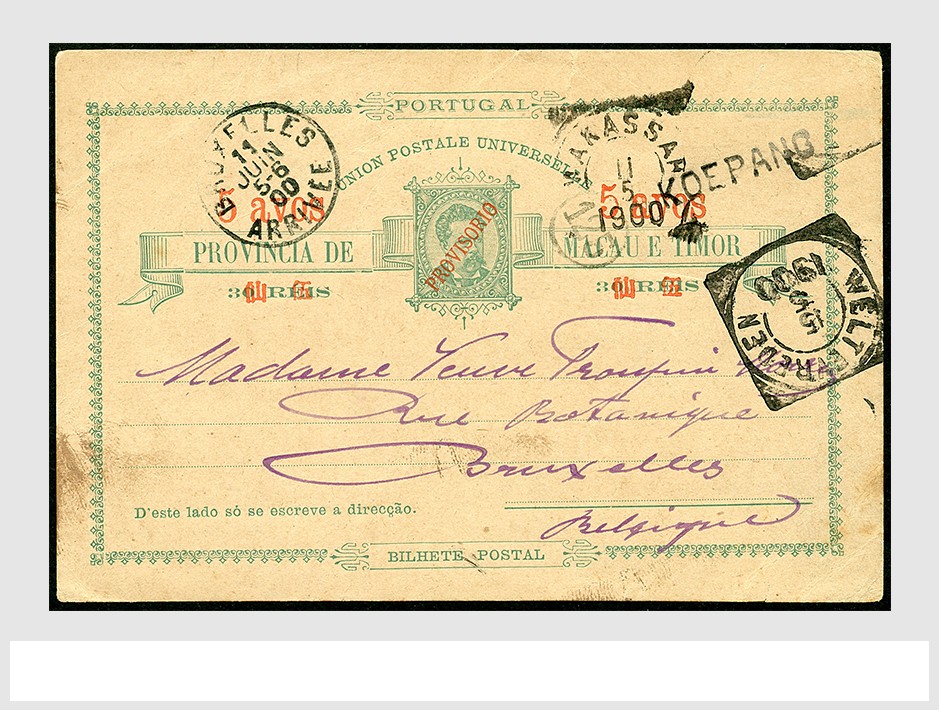 PORTUGAL
UNION POSTALE UNIVERSELLE
BRUXELLES
11
JUIN
5-6
00
ARRIVEE
MAKASSAR
11
5
1900
KOEPANG
5 avos
5 avos
PROVINCIA DE
MACAU E TIMOR
PROVISORIO
30 REIS
30 REIS
WELTEVREDEN
1900
Madame Veuve Troupin
Rue Botanique
Bruxelles
Belgique
D'este lado só se escreve a direcção.
BILHETE POSTAL